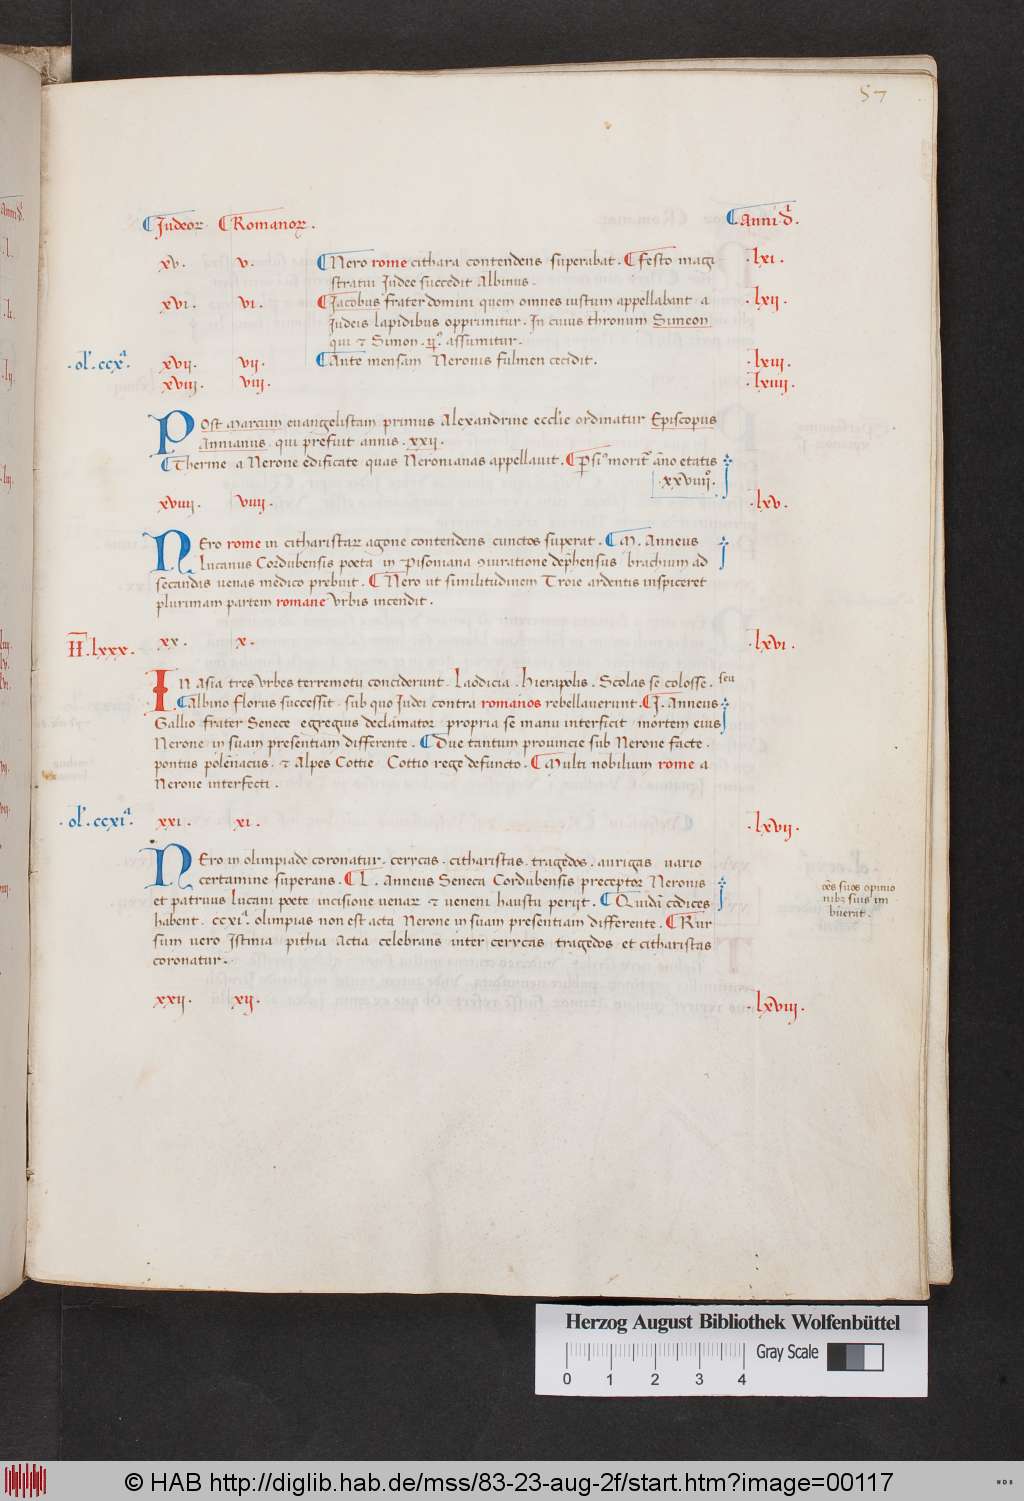 57
Judeoꝝ Romanoꝝ. Anni dı̃.
xv. v. Nero rome cithara contendens superabat. Festo magi .lxi.
stratui Judee succedit Albinus.
xvi. vi. Jacobus frater domini quem omnes iustum appellabant a .lxii.
Judeis lapidibus opprimitur. In cuius thronum Simeon
qui ⁊ Simon .ijº. assumitur.
.ol'.ccxª. xvij. vij. Ante mensam Neronis fulmen cecidit. .lxiii.
xviii. viii. .lxiiii.
Post Marcum evangelistam primus Alexandrine ecclie ordinatur Episcopus
Annianus. qui prefuit annis .xxij.
Therme a Nerone edificate quas Neronianas appellavit. Persiꝰ morit̃ año etatis
.xxviiijº.
xviiij. viiij. .lxv.
Nero rome in citharistaꝝ agone contendens cunctos superat. M. Anneus
Lucanus Cordubensis poeta in Pisoniana ꝯiuratione dep̃hensus brachium ad
secandas venas medico prebuit. Nero ut similitudinem Troie ardentis inspiceret
plurimam partem romane Urbis incendit.
II.lxxx. xx. x. .lxvi.
In Asia tres Urbes terremotu conciderunt. Laodicia. hierapolis. Scolas se colosse. seu
Albino Florus successit sub quo Judei contra romanos rebellaverunt. J. Anneus
Gallio frater Senece egregius declamator propria se manu interficit mortem eius
Nerone in suam presentiam differente. Due tantum provincie sub Nerone facte.
pontus polēnacus. ⁊ Alpes Cottie Cottio rege defuncto. Multi nobilium rome a
Nerone interfecti.
.ol'.ccxiª. xxi. xi. .lxvij.
Nero in olimpiade coronatur. cerycas. citharistas. tragedos. aurigas vario
certamine superans. L. Anneus Seneca Cordubensis preceptor Neronis
et patruus lucani poete incisione venaꝝ ⁊ veneni haustu perijt. Quidã codices
habent. ccxiª. olimpias non est acta Nerone in suam presentiam differente. Rur
sum vero Istmia pithia Actia celebrans inter cerycas tragedos et citharistas
coronatur.
oẽs suos opinio
nibꝫ suis im
būerat.
xxij. xij. .lxviij.
Herzog August Bibliothek Wolfenbüttel
Gray Scale
0 1 2 3 4
© HAB http://diglib.hab.de/mss/83-23-aug-2f/start.htm?image=00117